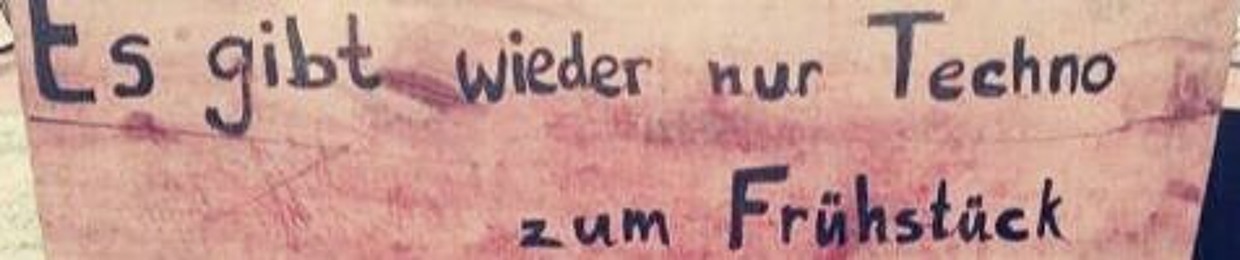 Es gibt wieder nur Techno
zum Frühstück